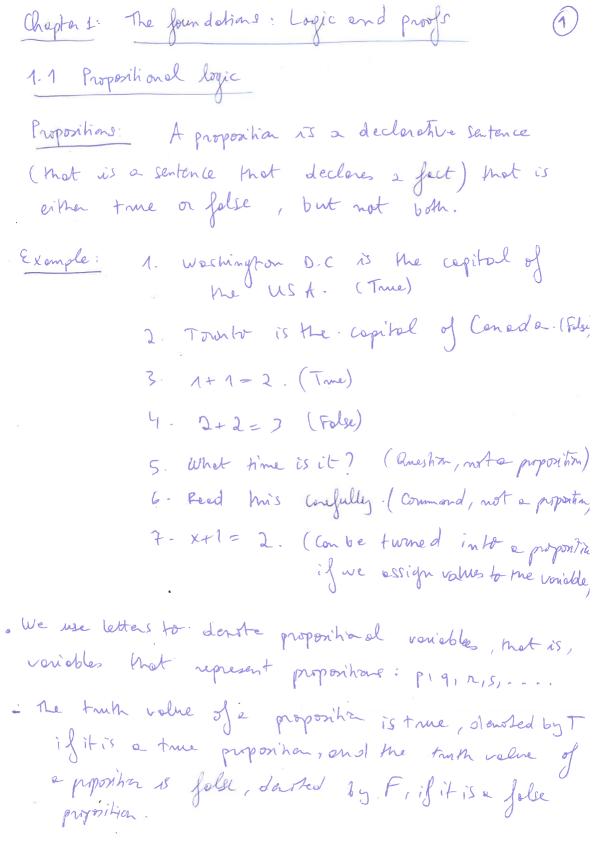 Chapter 1: The foundations: Logic and proofs
1
1.1 Propositional logic
Propositions: A proposition is a declarative sentence
(that is a sentence that declares a fact) that is
either true or false, but not both.
Example: 1. Washington D.C is the capital of
the USA. (True)
2. Toronto is the capital of Canada. (False
3. 1+1=2. (True)
4. 2+2=3 (False)
5. What time is it? (Question, not a proposition)
6. Read this carefully. (Command, not a proposition,
7. x+1=2. (Can be turned into a propositio
if we assign values to the variable,
. We use letters to denote propositional variables, that is,
variables that represent propositions: p, q, r, s, ....
- The truth value of a proposition is true, denoted by T
if it is a true proposition, and the truth value of
a proposition is false, denoted by F, if it is a false
proposition.